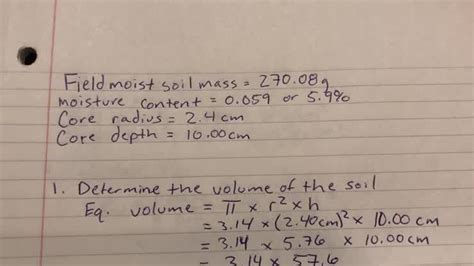 Field moist soil mass = 270.08g
moisture content = 0.059 or 5.9%
Core radius = 2.4cm
Core depth = 10.00cm
1. Determine the volume of the soil
Eq. volume = π x r² x h
= 3.14 x (2.40cm)² x 10.00 cm
= 3.14 x 5.76 x 10.00cm
= 3.14 x 57.6